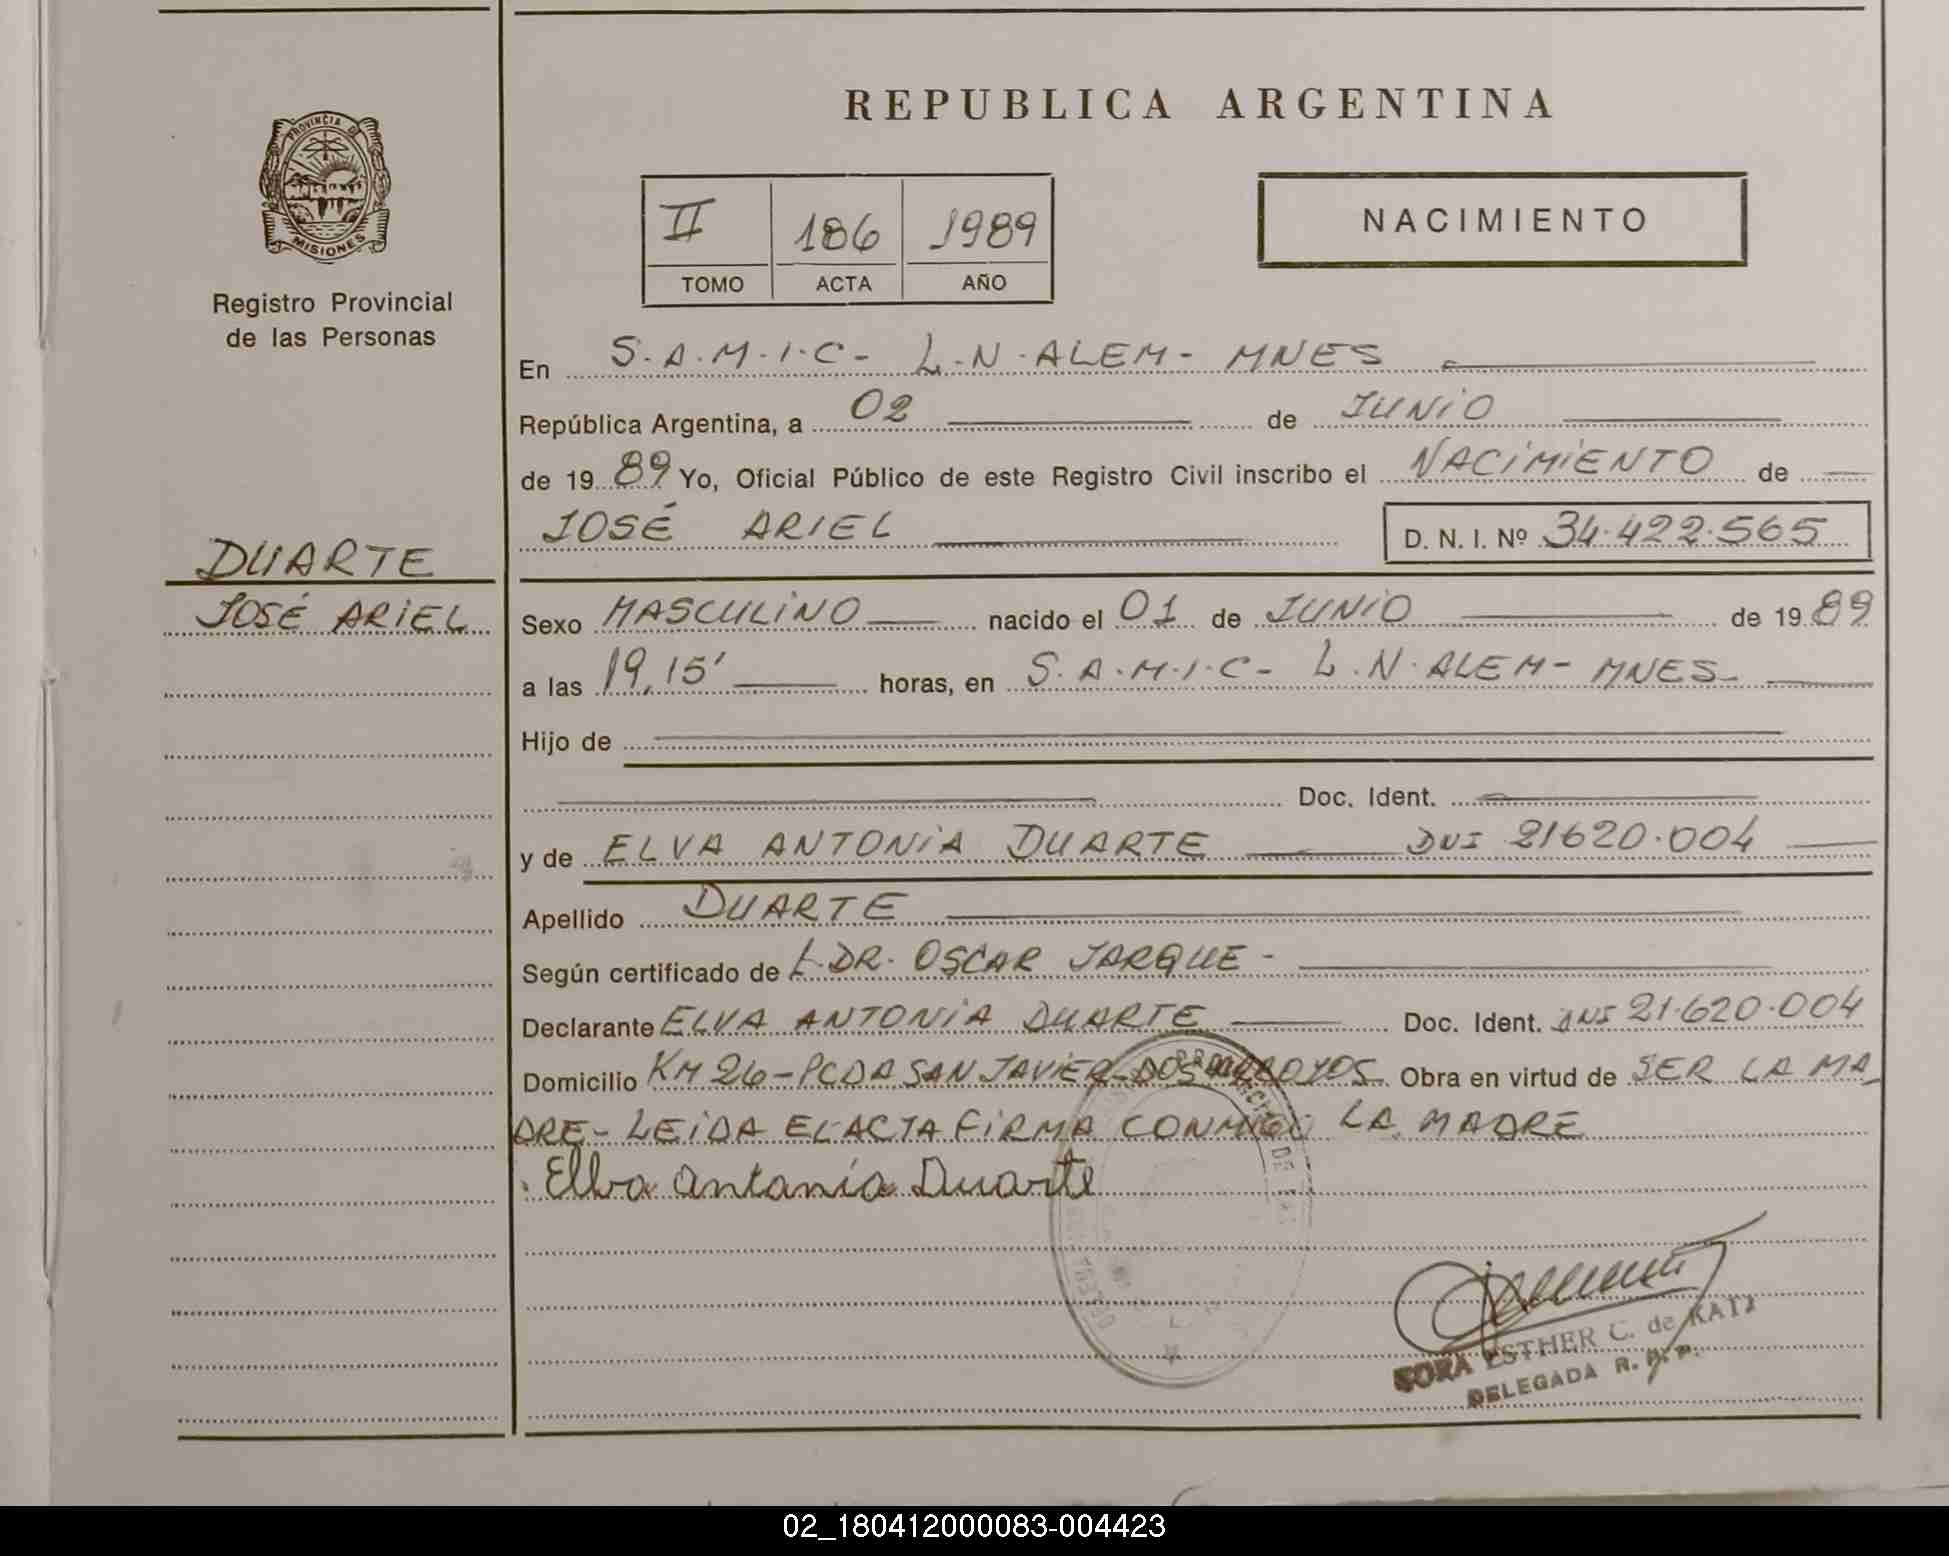 REPUBLICA ARGENTINA
PROVINCIA D MISIONES
Registro Provincial
de las Personas
II 186 1989
TOMO ACTA AÑO
NACIMIENTO
En S.A.M.I.C- L.N.ALEM- MNES
República Argentina, a 02 de JUNIO
de 19 89 Yo, Oficial Público de este Registro Civil inscribo el NACIMIENTO de
JOSÉ ARIEL D. N. I. Nº 34.422.565
DUARTE
JOSÉ ARIEL
Sexo MASCULINO nacido el 01 de JUNIO de 19 89
a las 19,15' horas, en S.A.M.I.C- L.N.ALEM- MNES-
Hijo de
Doc. Ident.
y de ELVA ANTONIA DUARTE DNI 21620.004
Apellido DUARTE
Según certificado de DR. OSCAR JARQUE-
Declarante ELVA ANTONIA DUARTE Doc. Ident. DNI 21.620.004
Domicilio KM 26-PCDA SAN JAVIER-DOS ARROYOS Obra en virtud de SER LA MA_
DRE- LEIDA EL ACTA FIRMA CONMIGO LA MADRE
Elva Antonia Duarte
ESTHER C. de KATZ
DELEGADA R. P. P.
02_180412000083-004423